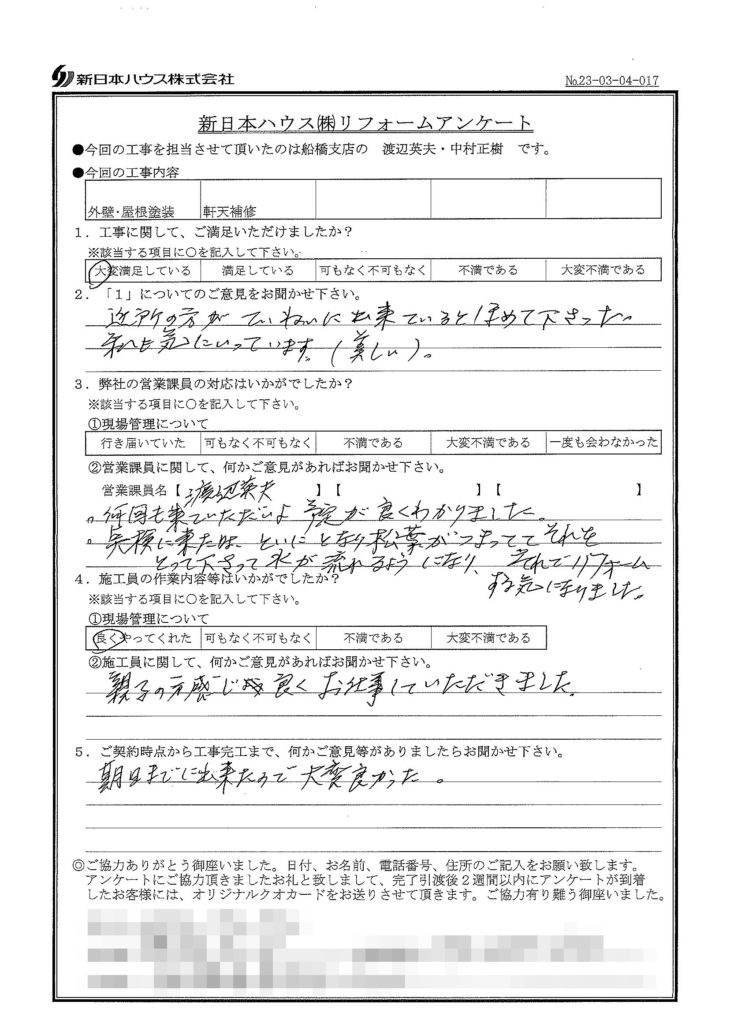 新日本ハウス株式会社
№23-03-04-017
新日本ハウス㈱リフォームアンケート
●今回の工事を担当させて頂いたのは船橋支店の 渡辺英夫・中村正樹 です。
●今回の工事内容
外壁・屋根塗装 軒天補修
1．工事に関して、ご満足いただけましたか？
※該当する項目に○を記入して下さい。
大変満足している 満足している 可もなく不可もなく 不満である 大変不満である
2．「1」についてのご意見をお聞かせ下さい。
近所の方がていねいに出来ているとほめて下さった。
私も気にいっています。(美しい)。
3．弊社の営業課員の対応はいかがでしたか？
※該当する項目に○を記入して下さい。
①現場管理について
行き届いていた 可もなく不可もなく 不満である 大変不満である 一度も会わなかった
②営業課員に関して、何かご意見があればお聞かせ下さい。
営業課員名【渡辺英夫 】【 】【 】
。何回も来ていただいよ 予定が良くわかりました。
。見積に来た はといにとなり松葉がつまっててそれを
とって下さって水が流れるようになり、それでリフォーム
する気になりました。
4．施工員の作業内容等はいかがでしたか？
※該当する項目に○を記入して下さい。
①現場管理について
良くやってくれた 可もなく不可もなく 不満である 大変不満である
②施工員に関して、何かご意見があればお聞かせ下さい。
親子の方感じ良くお仕事していただきました。
5．ご契約時点から工事完工まで、何かご意見等がありましたらお聞かせ下さい。
期日までに出来たので大変良かった。
◎ご協力ありがとう御座いました。日付、お名前、電話番号、住所のご記入をお願い致します。
アンケートにご協力頂きましたお礼と致しまして、完了引渡後2週間以内にアンケートが到着
したお客様には、オリジナルクオカードをお送りさせて頂きます。ご協力有り難う御座いました。